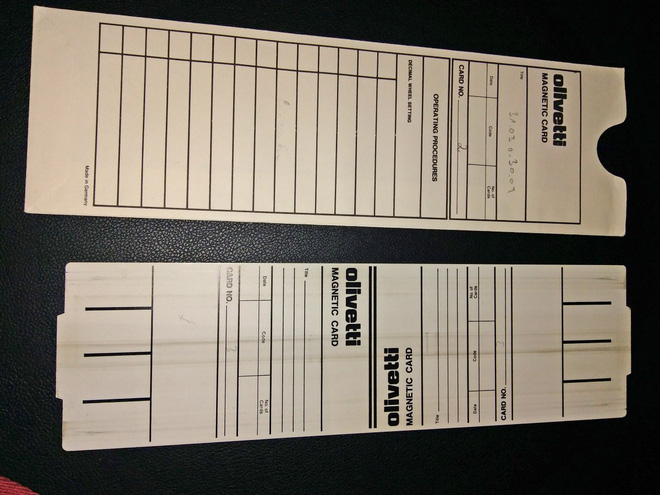 olivetti
MAGNETIC CARD
Title
31.03 0.30.09
Date
Code
No. of
Cards
CARD NO. 2
OPERATING PROCEDURES
DECIMAL WHEEL SETTING
Made in Germany
olivetti
MAGNETIC CARD
Title
Date
Code
No. of
Cards
CARD NO.
olivetti
MAGNETIC CARD
Title
Date
Code
No. of
Cards
CARD NO.